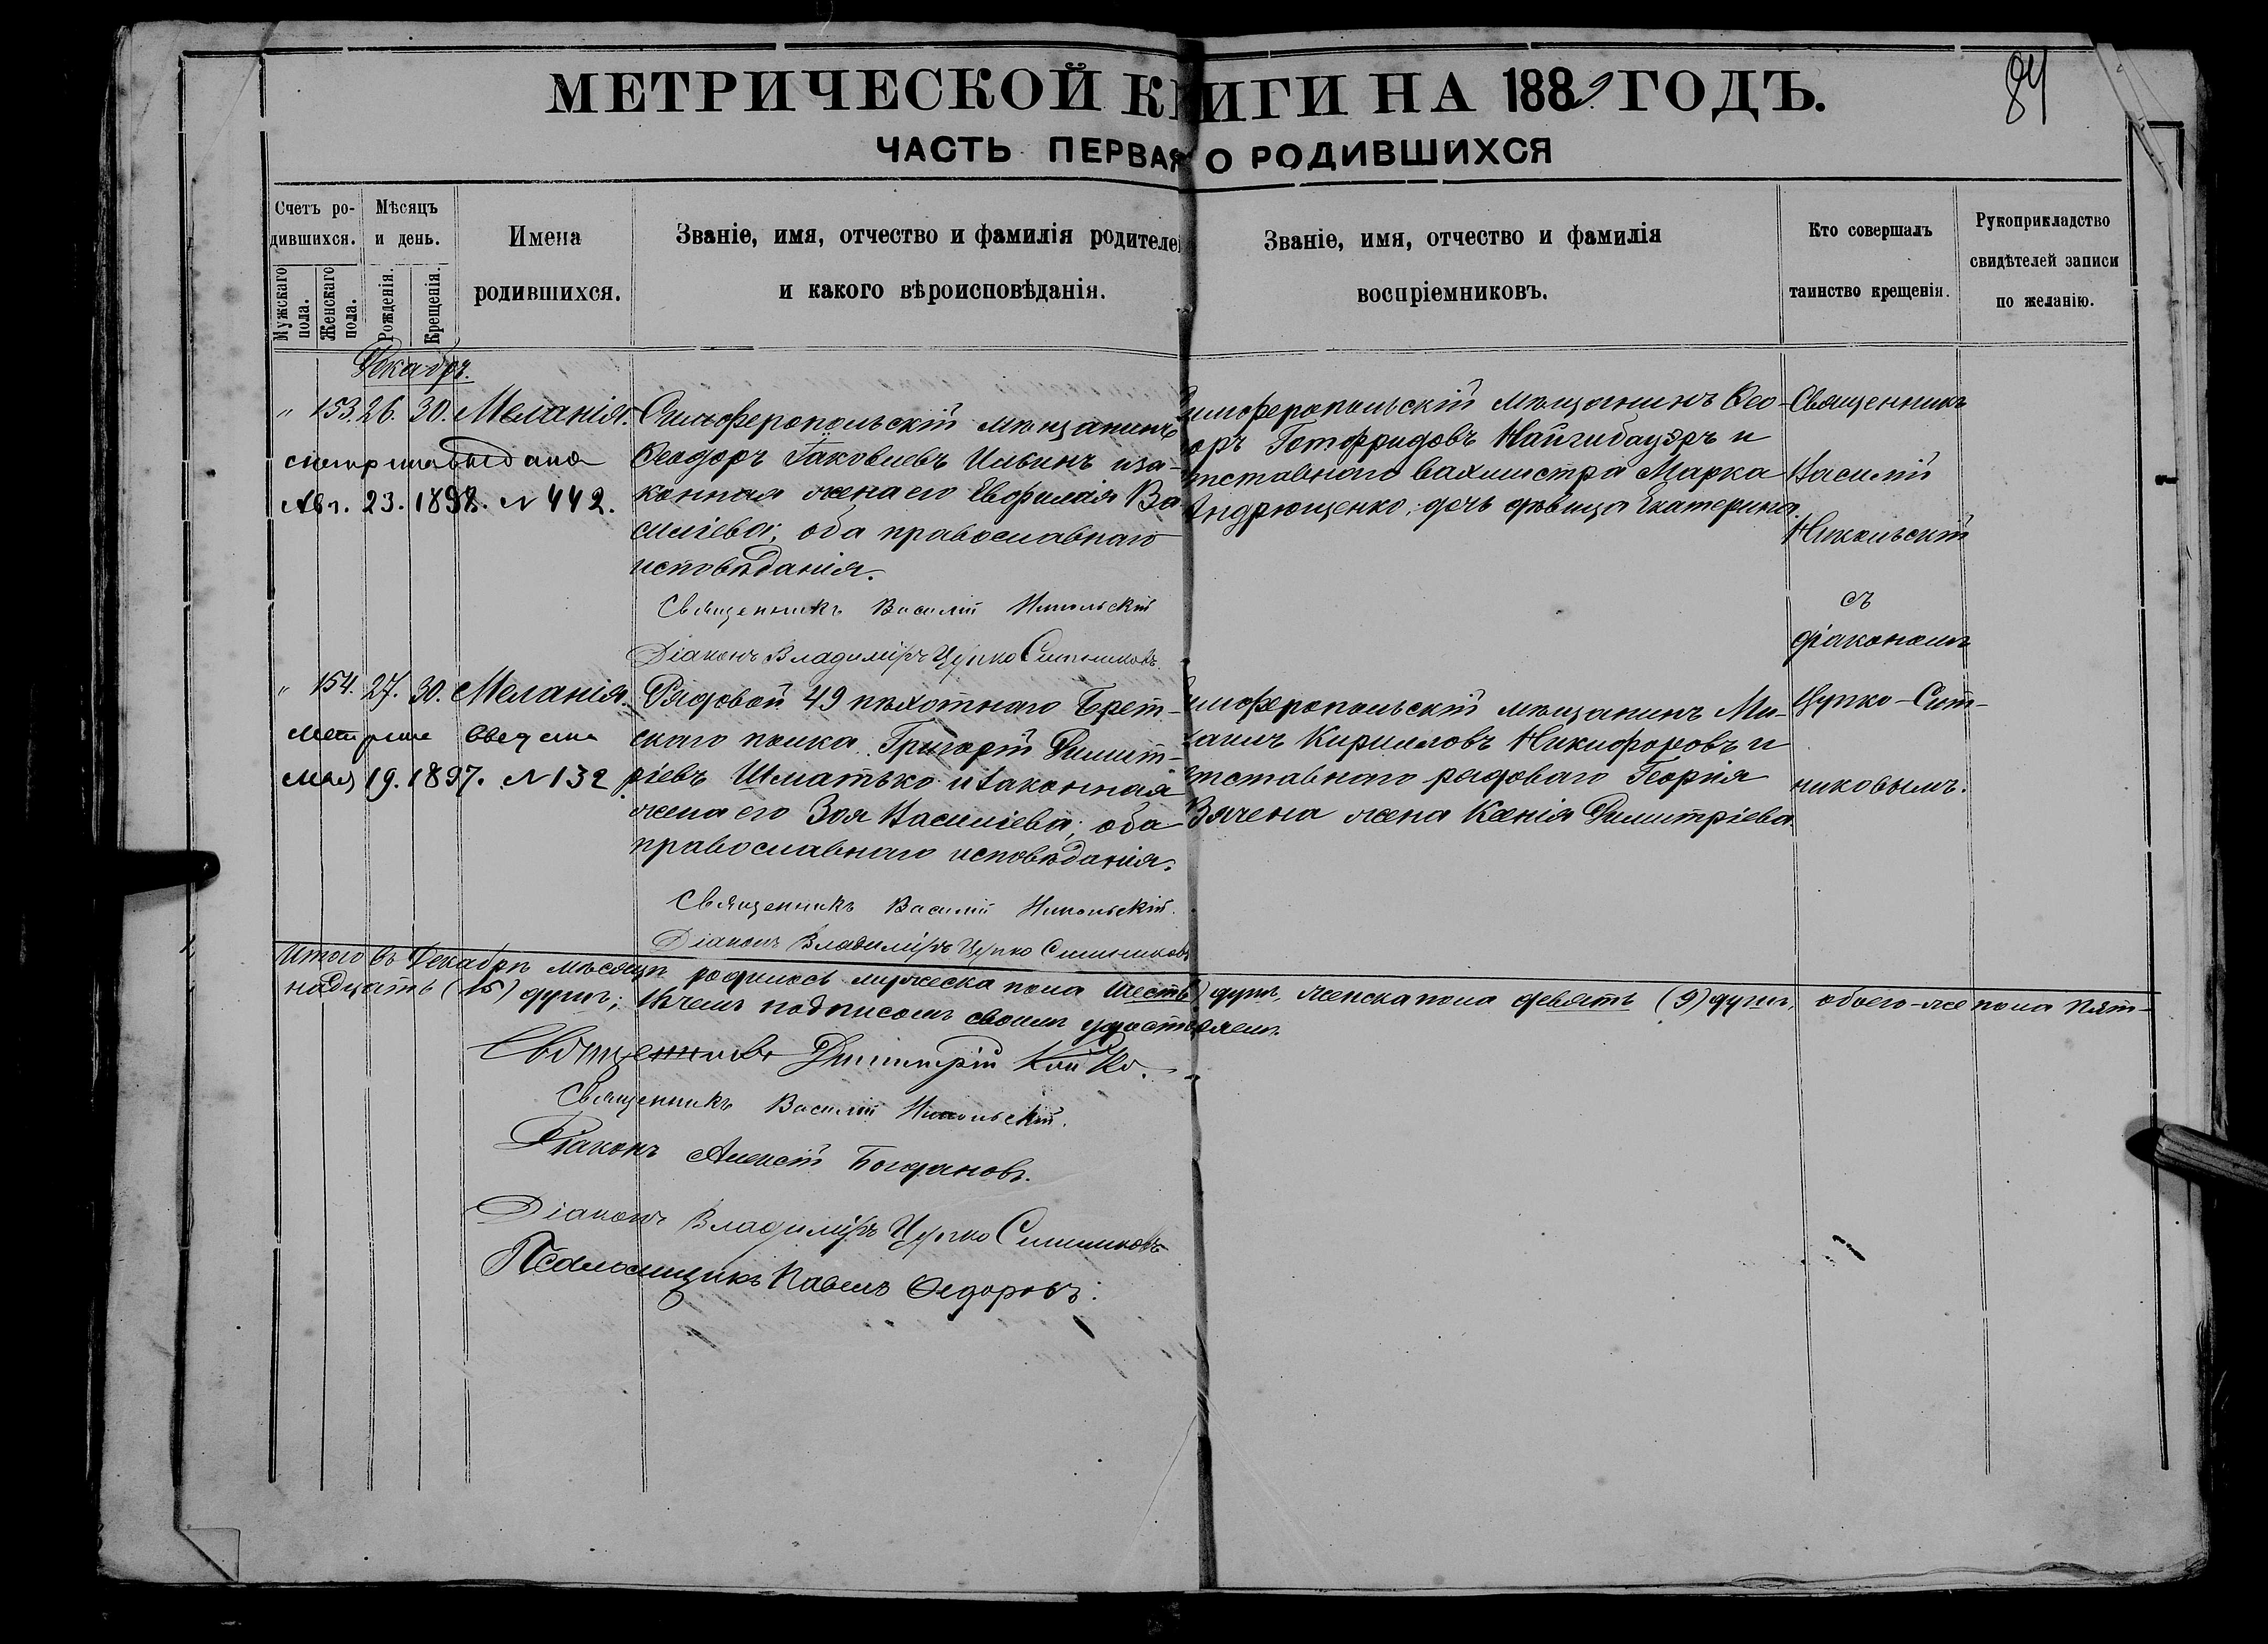 84
МЕТРИЧЕСКОЙ КНИГИ НА 1889 ГОДЪ.
ЧАСТЬ ПЕРВАЯ О РОДИВШИХСЯ
Счетъ ро-
дившихся.
Мужскаго
пола.
Женскаго
пола.
Мѣсяцъ
и день.
Рожденія.
Крещенія.
Имена
родившихся.
Званіе, имя, отчество и фамилія родителей
и какого вѣроисповѣданія.
Званіе, имя, отчество и фамилія
воспріемниковъ.
Кто совершалъ
таинство крещенія.
Рукоприкладство
свидѣтелей записи
по желанію.
Декабрь.
" 153. 26. 30. Меланія.
выдана
Авг. 23. 1898. N 442.
Симферопольскій мѣщанинъ
Ѳеодоръ Іаковлевъ Ильинъ и за-
конная жена его Евфимія Ва-
силіева; оба православнаго
исповѣданія.
Священникъ Василій Никольскій
Діаконъ Владиміръ Цупко Ситниковъ.
Симферопольскій мѣщанинъ Ѳео-
доръ Готфридовъ Найгибауэръ и
отставнаго вахмистра Марка
Андрющенко, дочь дѣвица Екатерина.
Священникъ
Василій
Никольскій
съ
діакономъ
Цупко-Сит-
никовымъ.
" 154. 27. 30. Меланія.
Метрика
мая 19. 1897. N 132
Рядовой 49 пѣхотнаго Брест-
скаго полка Григорій Димит-
ріевъ Шматько и законная
жена его Зоя Василіева; оба
православнаго исповѣданія.
Священникъ Василій Никольскій.
Діаконъ Владиміръ Цупко Ситниковъ
Симферопольскій мѣщанинъ Ми-
хаилъ Кирилловъ Никифоровъ и
отставнаго рядоваго Георгія
жена Ксенія Димитріева.
Итого въ Декабрѣ мѣсяцѣ родилось мужеска пола шесть душъ, женска пола девять (9) душъ, обоего-же пола пят-
надцать (15) душъ; въ чемъ подписомъ своимъ удостовѣряемъ
Священникъ Димитрій Койко.
Священникъ Василій Никольскій.
Діаконъ Алексій Богдановъ.
Діаконъ Владиміръ Цупко Ситниковъ
Псаломщикъ Павелъ Ѳедоровъ.